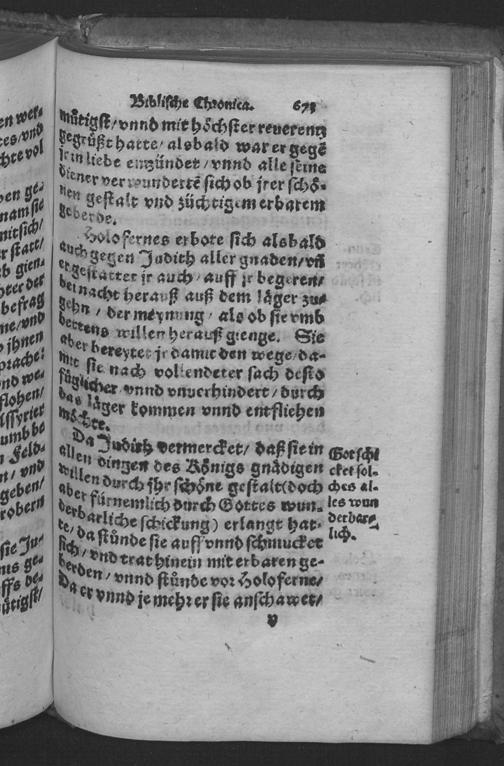 Biblische Chronica. 673
mütigst/vnnd mit höchster reuerentz
gegrüßt hatte/alsbald war er gegē
jr in liebe entzündet/vnnd alle seine
diener verwundertē sich ob jrer schö-
nen gestalt vnd züchtigem erbarem
geberde.
Holofernes erbote sich alsbald
auch gegen Judith aller gnaden/vñ
er gestattet jr auch/auff jr begeren/
bei nacht herauß auß dem läger zu-
gehn/der meynung/als ob sie vmb
bettens willen herauß gienge. Sie
aber bereytet jr damit den wege/da-
mit sie nach vollendeter sach desto
füglicher vnnd vnuerhindert/durch
das läger kommen vnnd entfliehen
möchte.
Da Judith vermercket/daß sie in
allen dingen des Königs gnädigen
willen durch jhr schöne gestalt(doch
aber fürnemlich durch Gottes wun-
derbarliche schickung) erlangt hat-
te/da stünde sie auff vnnd schmucket
sich/vnd trat hinein mit erbaren ge-
berden/vnnd stünde vor Holoferne/
Da er vnnd je mehr er sie anschawet/
v
Got schi
cket sol-
ches al-
les wun
derbar-
lich.
en wer-
tes/vnd
chte vol
en ge-
nam sie
mit sich/
r statt/
b gien-
hter der
befrag
ne/vnd
ihnen
prache:
nd we-
flohen/
Assyrier
umb be
Feld-
n/vnd
geben/
robern
sie Ju-
ms ge-
ffs de-
ütigst/